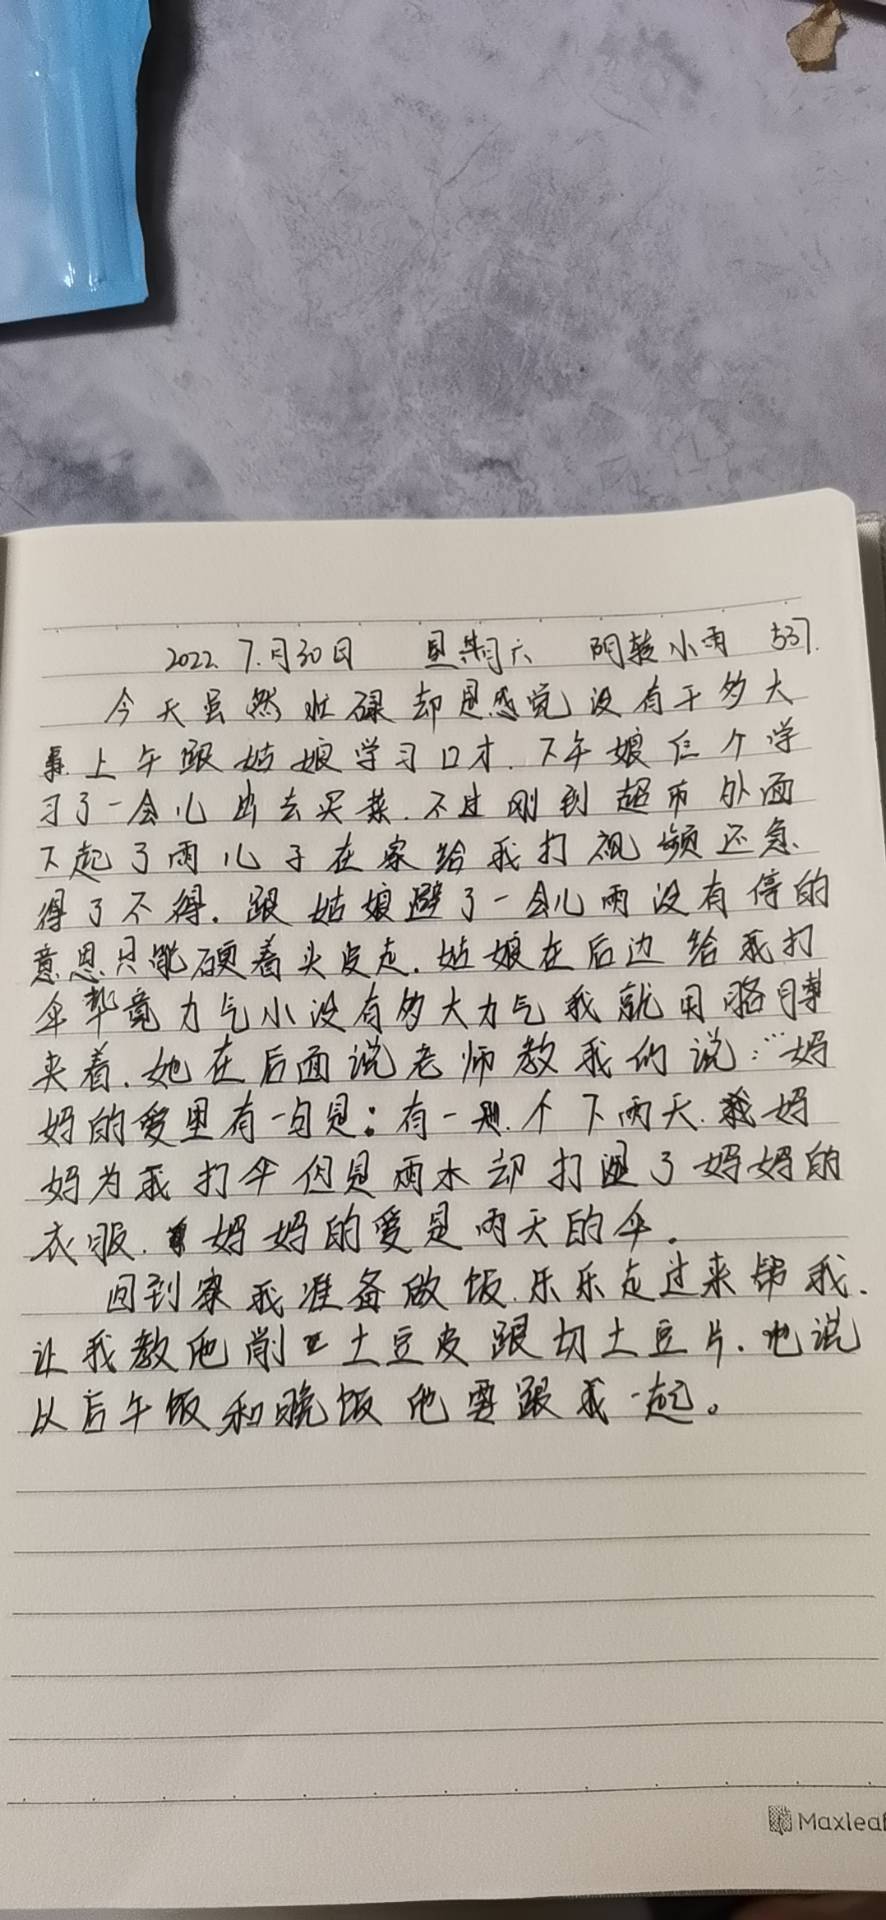 2022. 7.月30日 星期六 阴转小雨 537.
今天虽然忙碌却是感觉没有干多大
事上午跟姑娘学习口才.下午娘仨个学
习了一会儿出去买菜.不过刚到超市外面
下起了雨儿子在家给我打视频还急
得了不得.跟姑娘避了一会儿雨没有停的
意思只能硬着头皮走.姑娘在后边给我打
伞毕竟力气小没有多大力气我就用胳膊
夹着.她在后面说老师教我们说:…妈
妈的爱里有一句是:有一个下雨天.妈
妈为我打伞但是雨水却打湿了妈妈的
衣服.妈妈的爱是雨天的伞。
回到家我准备做饭.乐乐走过来帮我.
让我教他削土豆皮跟切土豆片.他说
以后午饭和晚饭他要跟我一起。
Maxleaf